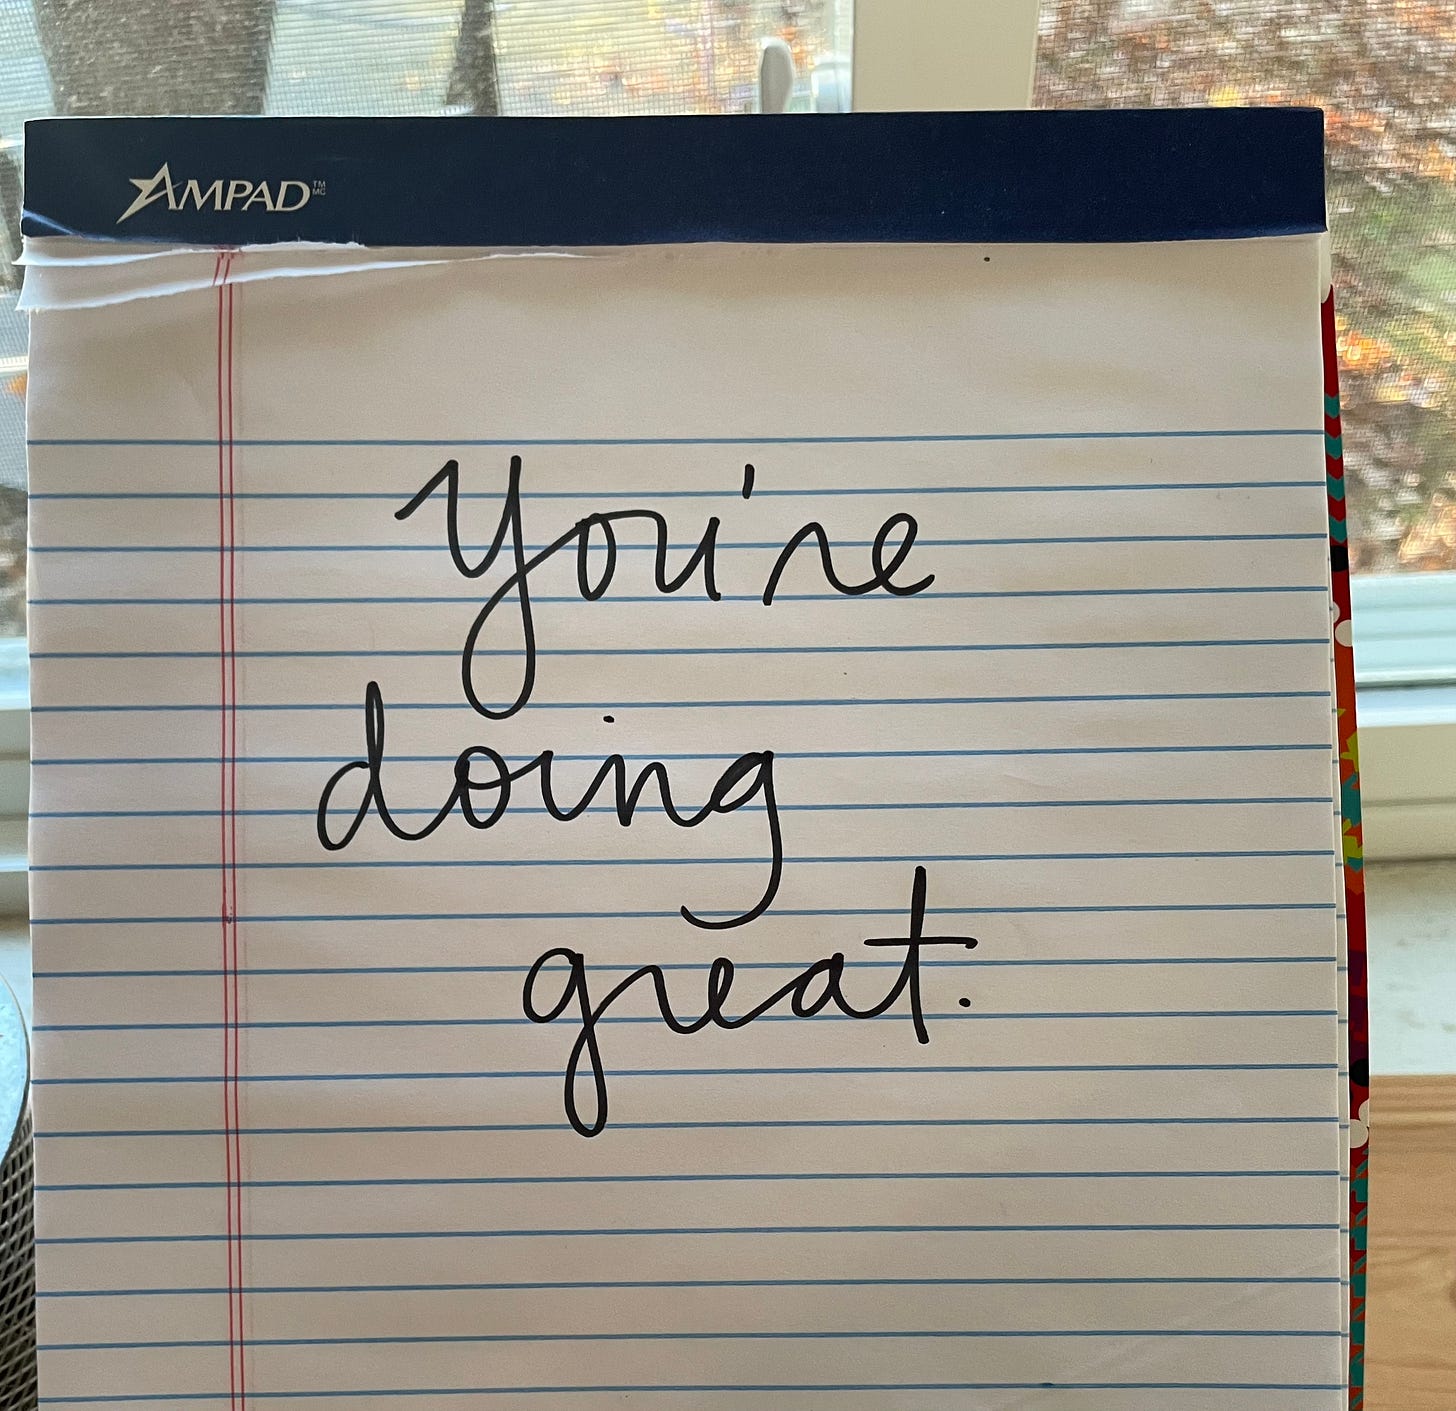 AMPAD TM MC
You're
doing
great.